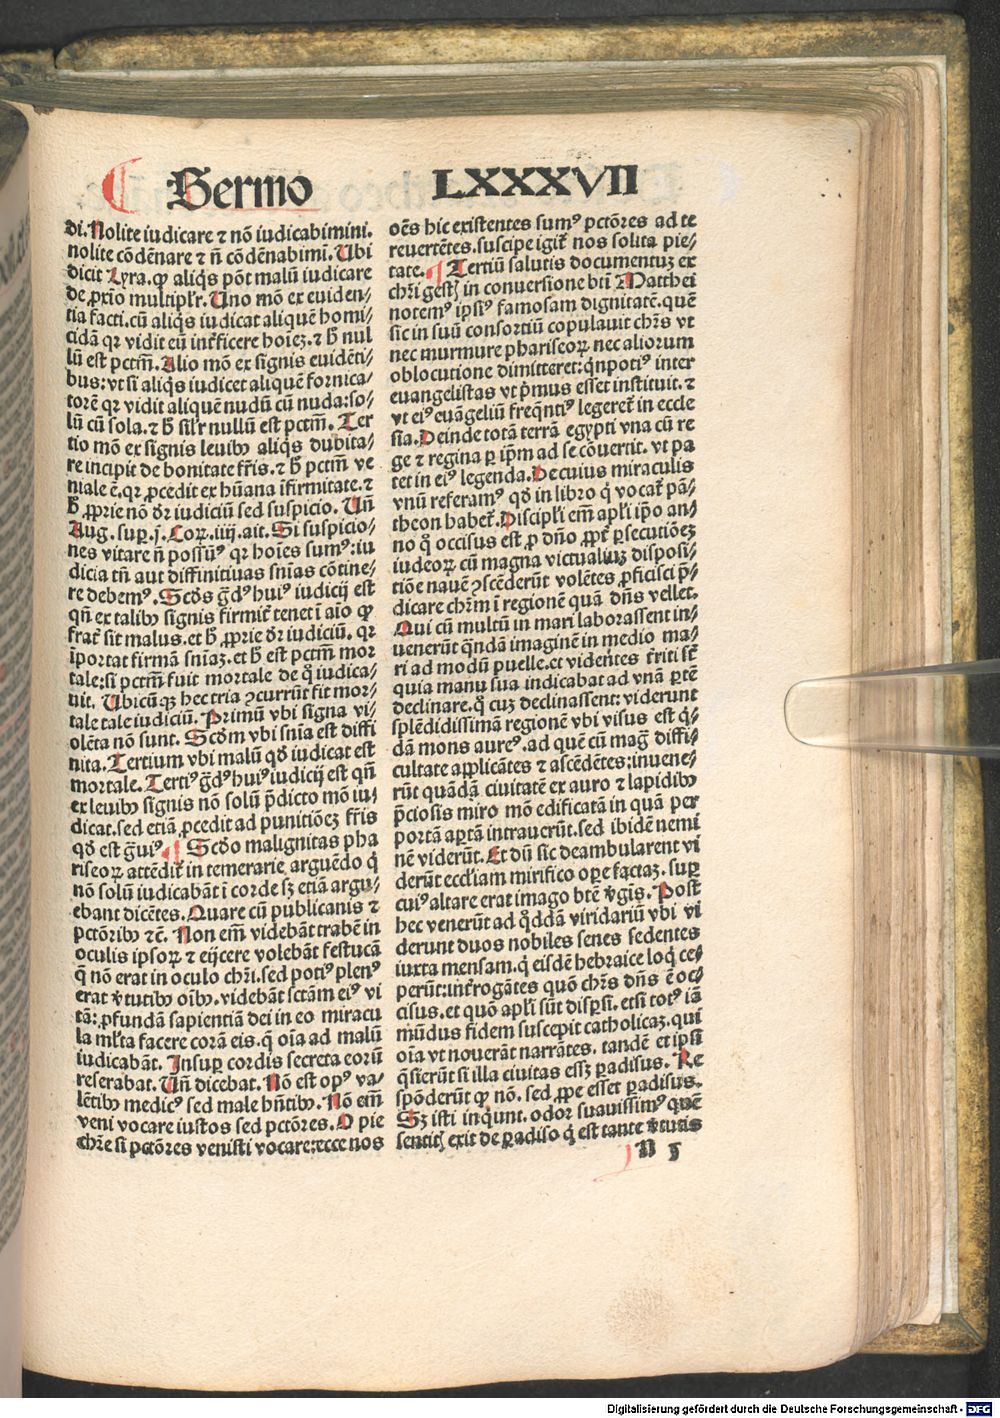 Sermo LXXXVII
di. Nolite iudicare ⁊ nõ iudicabimini.
nolite cõdẽnare ⁊ ñ cõdẽnabimĩ. Ubi
dicit Lyra. ꝙ aliq̃s põt malũ iudicare
de ꝓxĩo multipl'r. Uno mõ ex euiden⸗
tia facti. cũ aliq̃s iudicat aliquẽ homi⸗
cidã qꝛ vidit eũ int'ficere hoĩeꝫ. ⁊ h̃ nul
lũ est pctm̃. Alio mõ ex signis euidẽti⸗
bus: vt si aliq̃s iudicet aliquẽ fornica⸗
torẽ qꝛ vidit aliquẽ nudũ cũ nuda: so⸗
lũ cũ sola. ⁊ h̃ sil'r nullũ est pctm̃. Ter
tio mõ ex signis leuibꝰ aliq̃s dubita⸗
re incipit de bonitate fr̃is. ⁊ h̃ pctm̃ ve
niale ẽ. qꝛ ꝓcedit ex hũana ĩfirmitate. ⁊
h̃ ꝓprie nõ dr̃ iudiciũ sed suspicio. Uñ
Aug. suꝑ. j. Coꝝ. iiij. ait. Si suspicio⸗
nes vitare ñ possũꝰ qꝛ hoĩes sumꝰ: iu
dicia tñ aut diffinitiuas sñias cõtine⸗
re debemꝰ. Scd̃s g̃dꝰ huiꝰ iudicij est
qñ ex talibꝰ signis firmit' tenet ĩ aĩo ꝙ
frat' sit malus. et h̃ ꝓprie dr̃ iudiciũ. qꝛ
ĩportat firmã sñiaꝫ. et h̃ est pctm̃ mor
tale: si pctm̃ fuit mortale de q̃ iudica⸗
uit. Ubicũqꝫ hec tria ꝯcurrũt fit mor⸗
tale tale iudiciũ. Primũ vbi signa vi⸗
olẽta nõ sunt. Scd̃m vbi sñia est diffi
nita. Tertium vbi malũ qd̃ iudicat est
mortale. Tertiꝰ g̃dꝰ huiꝰ iudicij est qñ
ex leuibꝰ signis nõ solũ p̃dicto mõ iu⸗
dicat. sed etiã ꝓcedit ad punitiõeꝫ fr̃is
qd̃ est g̃uiꝰ. ¶ Scd̃o malignitas pha
riseoꝝ attẽdit' in temerarie arguẽdo q̃
nõ solũ iudicabãt ĩ corde sꝫ etiã argu⸗
ebant dicẽtes. Quare cũ publicanis ⁊
pctõribꝰ ⁊c̃. Non em̃ videbãt trabẽ in
oculis ipsoꝝ ⁊ eijcere volebãt festucã
q̃ nõ erat in oculo chr̃i. sed potiꝰ plenꝰ
erat v̓tutibꝰ oĩbꝰ. videbãt sctãm eiꝰ vi
tã: ꝓfundã sapientiã dei in eo miracu
la ml'ta facere corã eis. q̃ oĩa ad malũ
iudicabãt. Insuꝑ cordis secreta eorũ
reserabat. Uñ dicebat. Nõ est opꝰ va⸗
lẽtibꝰ medicꝰ sed male hñtibꝰ. Nõ em̃
veni vocare iustos sed pctõres. O pie
chr̃e si pctõres venisti vocare: ecce nos
oẽs hic existentes sumꝰ pctõres ad te
reuertẽtes. suscipe igit' nos solita pie⸗
tate. ¶ Tertiũ salutis documentuꝫ ex
chr̃i gestꝭ in conuersione bt̃i Matthei
notemꝰ ip̃siꝰ famosam dignitatẽ. quẽ
sic in suũ consortiũ copulauit chr̃s vt
nec murmure phariseoꝝ nec aliorum
oblocutione dimitteret: q̃npotiꝰ inter
euangelistas vt p̃mus esset instituit. ⁊
vt eiꝰ euãgeliũ freq̃ntiꝰ legeret' in eccle
sia. Deinde totã terrã egypti vna cũ re
ge ⁊ regina ꝑ ip̃m ad se cõuertit. vt pa
tet in eiꝰ legenda. De cuius miraculis
vnũ referamꝰ qd̃ in libro q̃ vocat' pã⸗
theon habet'. Discipl'i em̃ apl'i ip̃o an⸗
no q̃ occisus est ꝓ dño ꝓpt' ꝑsecutiõeꝫ
iudeoꝝ cũ magna victualiuꝫ disposi⸗
tiõe nauẽ ꝯscẽderũt volẽtes ꝓficisci p̃⸗
dicare chr̃m ĩ regionẽ quã dñs vellet.
Qui cũ multũ in mari laborassent in⸗
uenerũt q̃ndã imaginẽ in medio ma⸗
ri ad modũ puelle. et videntes t'riti sũt
quia manu sua indicabat ad vnã ꝑtẽ
declinare. q̃ cuꝫ declinassent: viderunt
splẽdidissimã regionẽ vbi visus est q̃⸗
dã mons aureꝰ. ad quẽ cũ mag̃ diffi⸗
cultate applicãtes ⁊ ascẽdẽtes: inuene⸗
rũt quãdã ciuitatẽ ex auro ⁊ lapidibꝰ
p̃ciosis miro mõ edificatã in quã per
portã aꝑtã intrauerũt. sed ibidẽ nemi
nẽ viderũt. Et dũ sic deambularent vi
derũt eccl'iam mirifico oꝑe factaꝫ. suꝑ
cuiꝰ altare erat imago bt̃e v̓gis. Post
hec venerũt ad q̃ddã viridariũ vbi vi
derunt duos nobiles senes sedentes
iuxta mensam. q̃ eisdẽ hebraice loq̃ ce⸗
perũt: int'rogãtes quo chr̃s dñs ẽ oc⸗
cisus. et quõ apl'i sũt disꝑsi. etsi totꝰ iã
mũdus fidem suscepit catholicaꝫ. qui
oĩa vt nouerãt narrãtes. tandẽ et ipsi
q̃sierũt si illa ciuitas esset paradisus. Re
spõderũt ꝙ nõ. sed ꝓpe esset paradisus.
Sꝫ isti inq̃unt. odor suauissimꝰ quẽ
sentitꝭ exit de ꝑadiso q̃ est tante v̓tutis
N 3
Digitalisierung gefördert durch die Deutsche Forschungsgemeinschaft - DFG